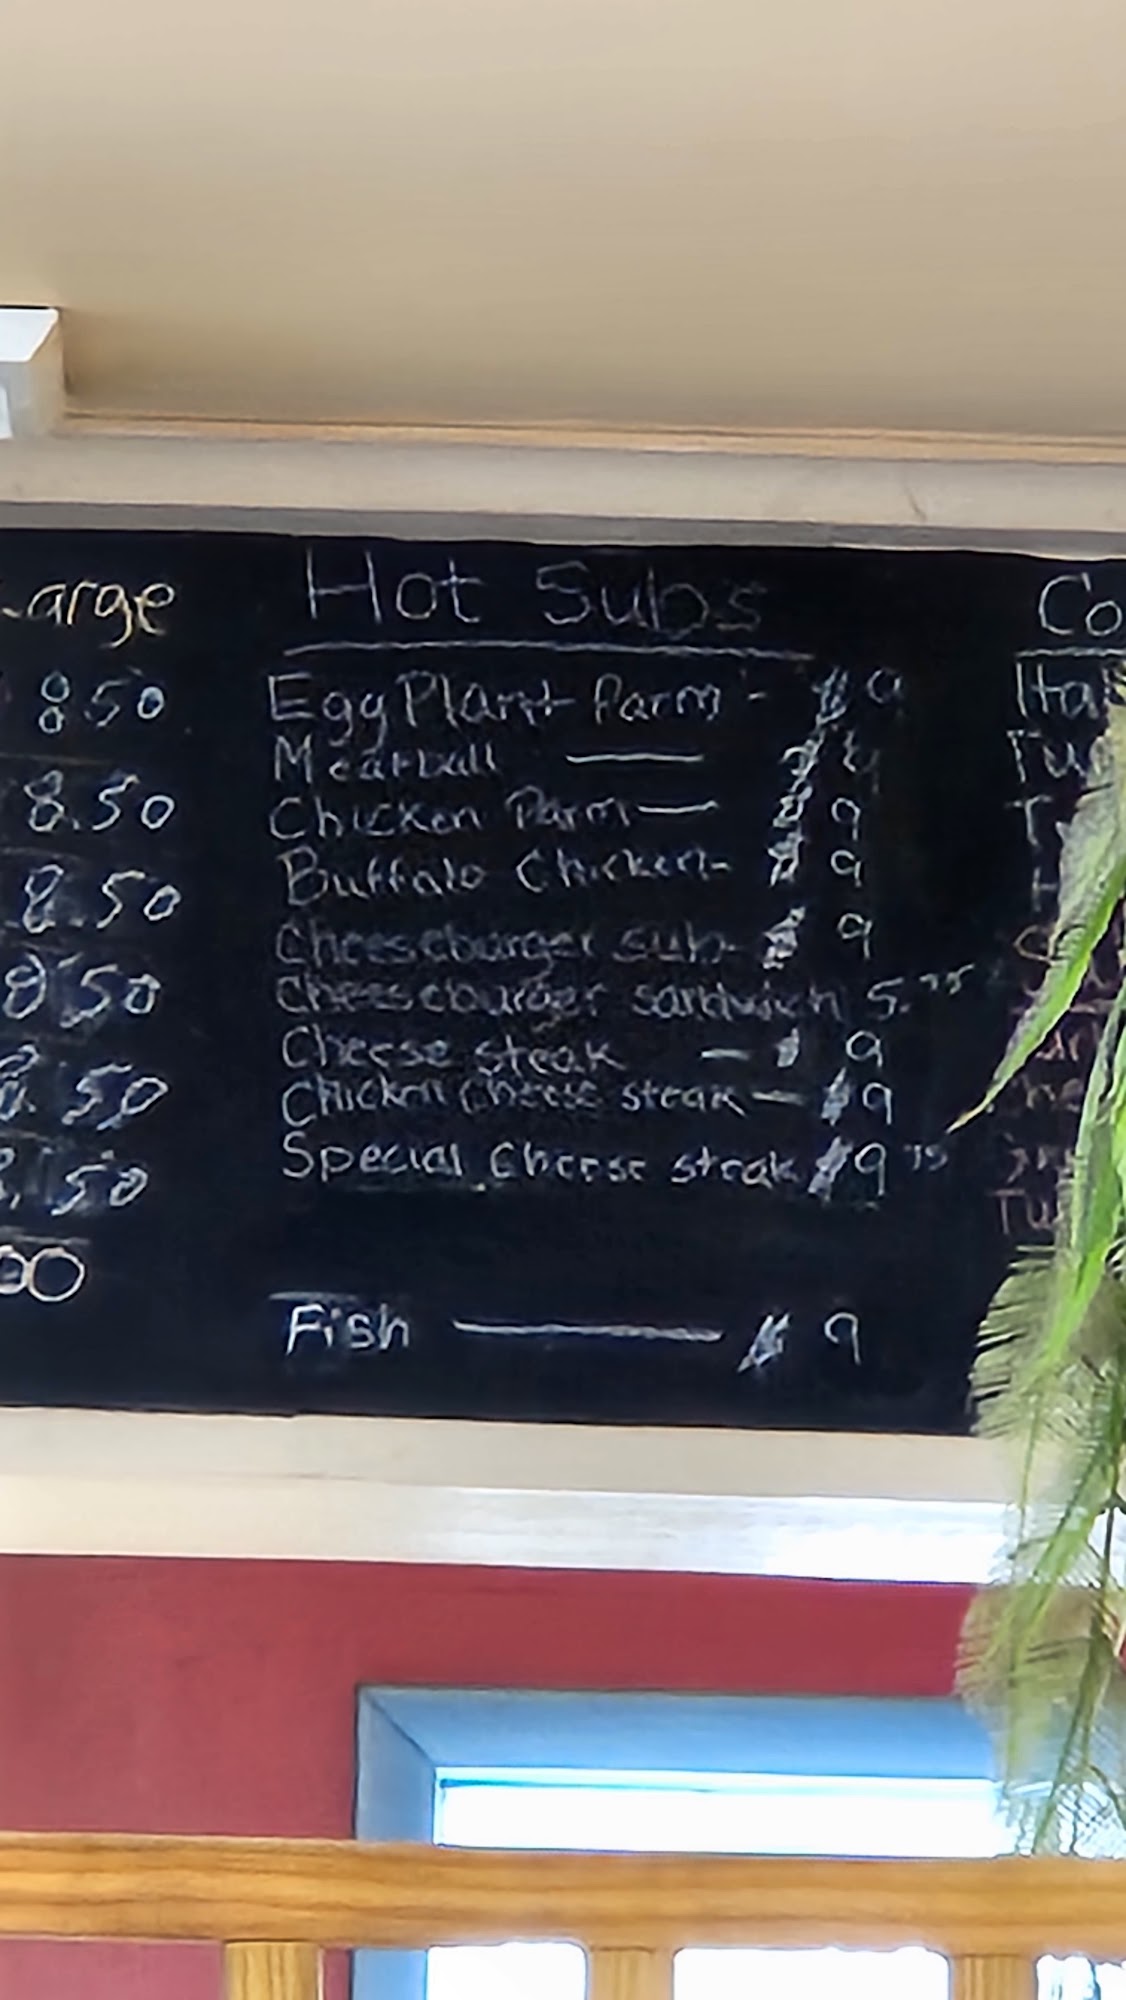 Large
8 50
8.50
8.50
8 50
50
50
00
Hot Subs
EggPlant Parm - $ 9
Meatball — $ 9
Chicken Parm — $ 9
Buffalo Chicken - $ 9
Cheeseburger sub - $ 9
Cheeseburger sandwich 5.75
Cheese steak — $ 9
Chicken Cheese steak — $9
Special Cheese steak $9 75
Fish — $ 9
Co
Ita